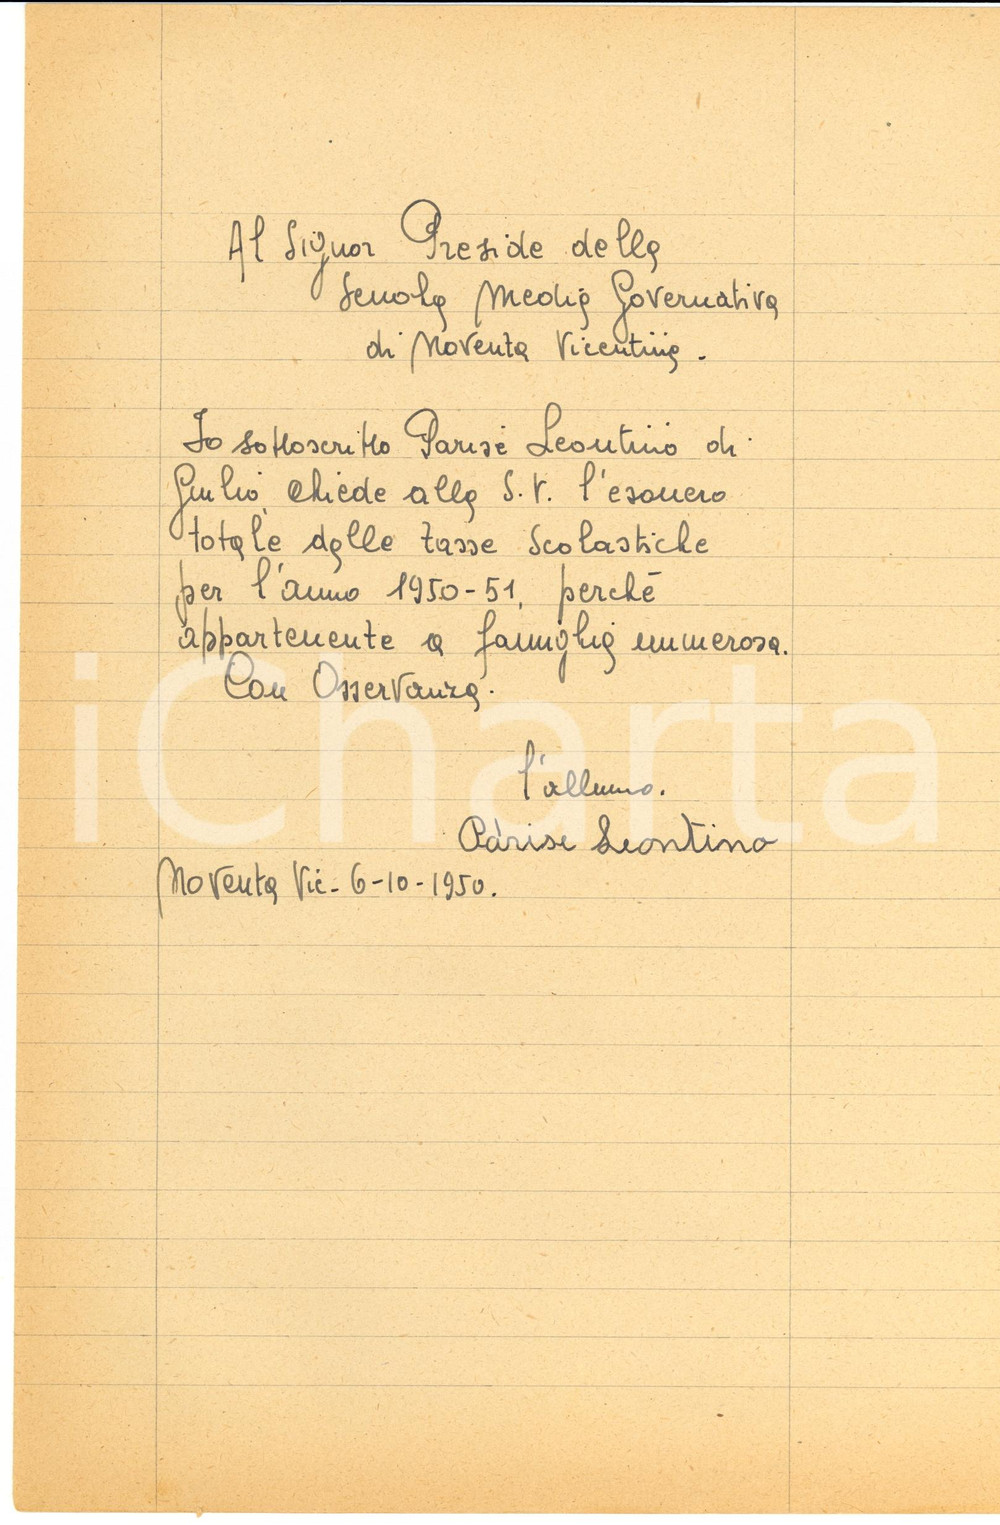 Al Signor Preside della
Scuola Media Governativa
di Noventa Vicentina.
Io sottoscritto Parise Leontino di
Giulio chiede alla S.V. l'esonero
totale dalle tasse scolastiche
per l'anno 1950-51, perché
appartenente a famiglia numerosa.
Con Osservanza.
l'allunno.
Parise Leontino
Noventa Vic- 6-10-1950.
iCharta